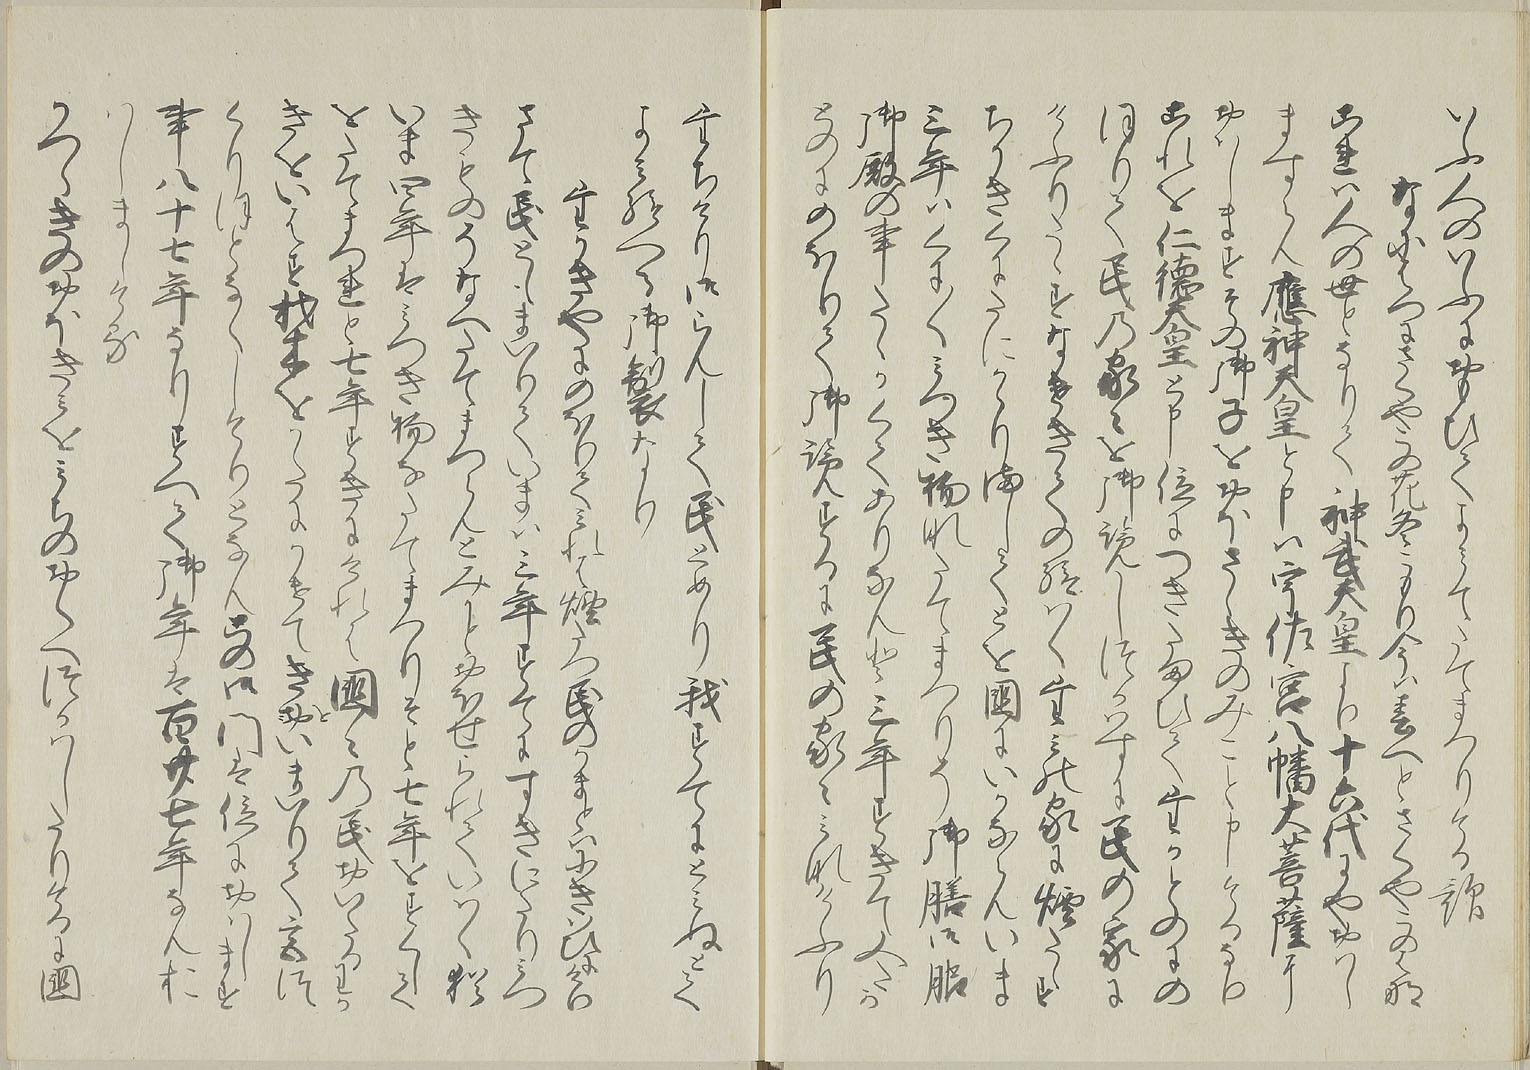 いふ人のいふにおもひてよみてたてまつりける歌
なにはつにさくやこの花冬こもり今は春へとさくやこの花
これは人の世となりて神武天皇より十六代にやおはし
ますらん應神天皇と申は宇佐宮八幡大菩薩に
おはしますその御子をおほさゝきのみことゝ申けるなり
これを仁徳天皇と申位につきたまひてたかとのにの
ほりて民の家々を御覧しつかはすに民の家に
けふりたゝすなけきての給はくたみの家に煙たゝす
ちかきくにたにかくり満してとを國いかならんいま
三年はくに／＼みつき物なたてまつりそ御膳御服
御殿の事たゝかくてありなんと三年すきて人たか
とのにのほりて御覧するに民の家々みなけふり
たちけり御らんして民とめり我すてにとみぬとて
よみ給へる御製なり
たかきやにのほりてみれは煙たつ民のかまとはにきはひにけり
さて民ともまいりていまは三年すてにすきにたりみつ
きものそなへたてまつらんとみことおほせられていはく猶
いま四年はみつき物なたてまつりそと七年をすくして
をたてまつれと七年すきにけれは國々の民おいたるわか
きをいはす材木をかたにかきてきおいまいりて宮つ
くりほとなくしけりとなんこの御門は位におはします
事八十七年なりすへて御年は百廿七年なんお
はしましける
かつらきのおほきみをみちのおくへつかはしたりけるに國